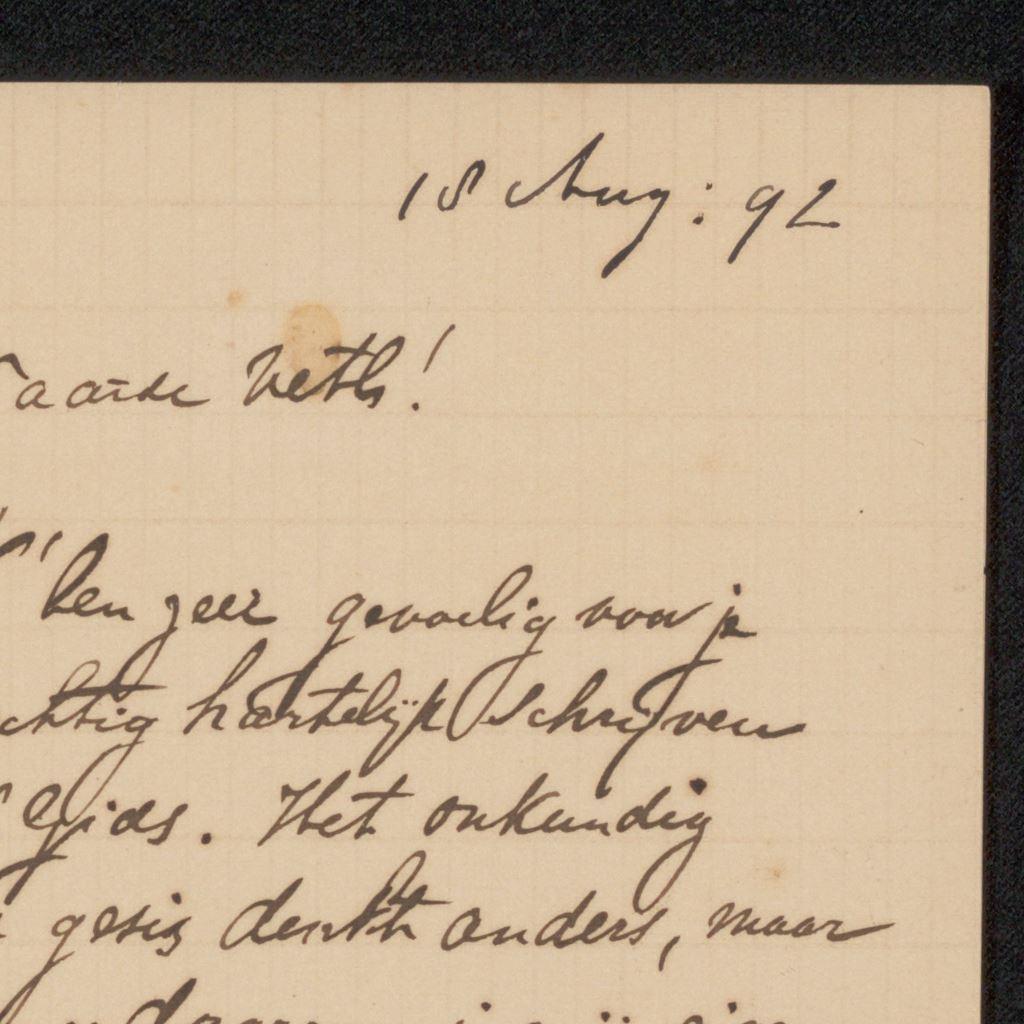 18 Aug: 92
Waarde Veth!
'k ben zeer gevoelig voor je
chtig hartelijk schrijven
Gids. Het onkundig
denkt anders, maar